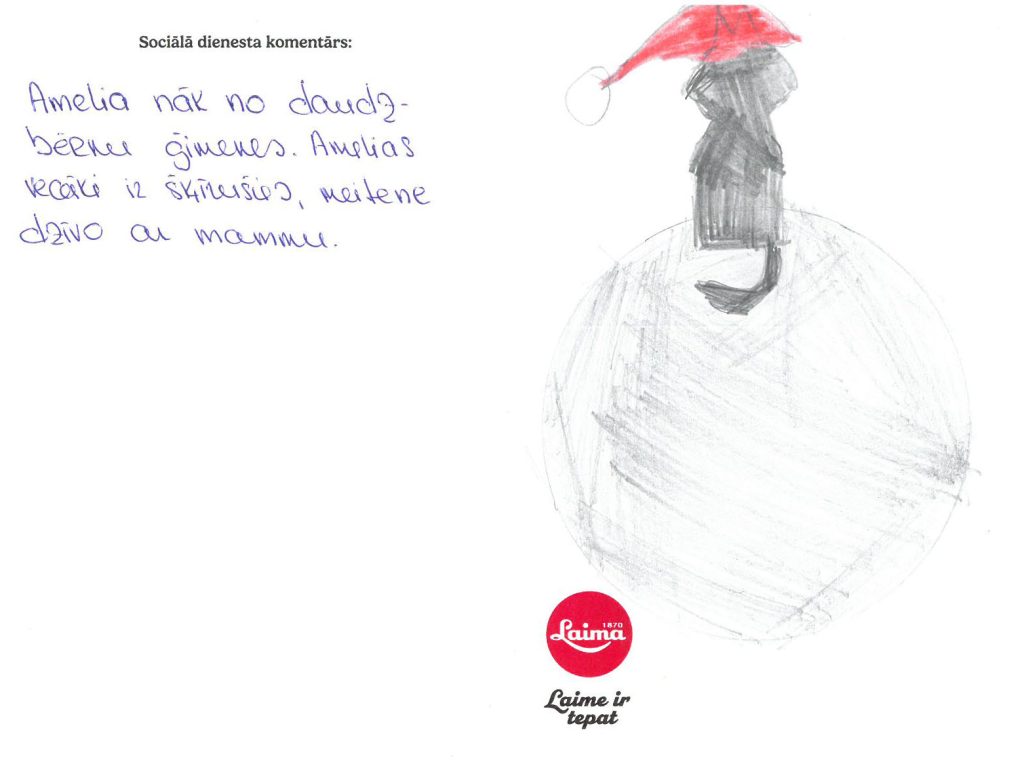 Sociālā dienesta komentārs:
Amelia nāk no daudz-
bērnu ģimenes. Amelias
vecāki ir šķīrušies, meitene
dzīvo ar mammu.
1870
Laima
Laime ir
tepat